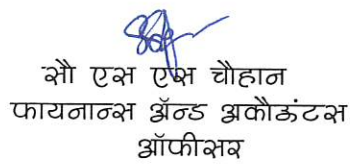 सौ एस एस चौहान
फायनान्स ॲन्ड अकौऊंटस
ऑफीसर